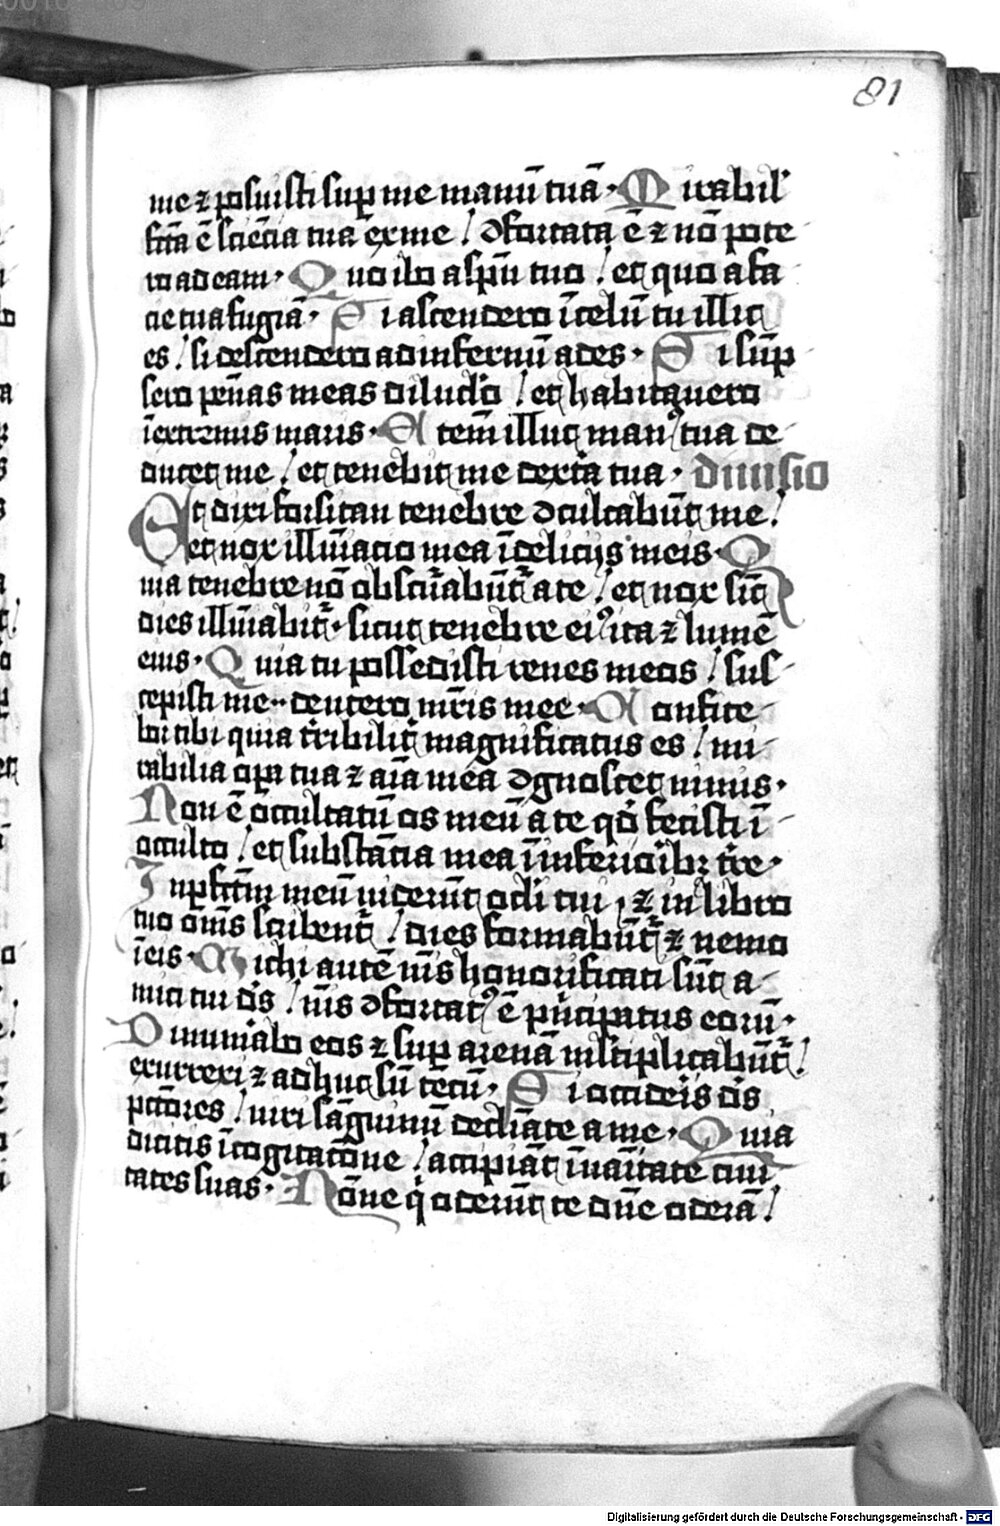 81
me ⁊ posuisti sup me manū tuā · Mirabil'
fc̄ta ē sciēcia tua ex me / ꝯfortata ē ⁊ nō pote
ro ad eam · Quo ibo a spū tuo / et quo a fa
cie tua fugiā · Si ascendero ī celū tu illic
es / si descendero ad infernū ades · Si sūp
sero pēnas meas diluc̄lo / et habitauero
ī extremis maris · Etem̄ illuc manꝰ tua de
ducet me / et tenebit me dextā tua · diuisio
Et dixi forsitan tenebre ꝯculcabūt me /
et nox illūīacio mea ī delicijs meis · Q
uia tenebre nō obscurabūt᷑ a te / et nox sic̄
dies illūīabit᷑ · sicut tenebre eiꝰ ita ⁊ lumē
eius · Quia tu possedisti renes meos / sus
cepisti me de utero mr̄is mee · Confite
bor tibi quia tribilit᷑ magnificatus es / mi
rabilia opa tua ⁊ aīa mea ꝯgnoscet nimis ·
Non ē occultatū os meū a te qd̄ fecisti ī
occulto / et substācia mea ī inferioribꝫ tre ·
Inpfc̄tm meū viderūt ocli tui , ⁊ in libro
tuo om̄s scribent᷑ / dies formabūt᷑ ⁊ nemo
ī eis · Michi autē nīs honorificati sūt a
mici tui ds̄ / nīs ꝯfortatꝰ ē pncipatus eorū ·
Dinumābo eos ⁊ sup arenā mltiplicabūt᷑ /
exurrexi ⁊ adhuc sū tecū · Si occideis ds̄
pctōres / viri sāguinū declīate a me · Quia
dicitis ī cogitacōne / accipiāt ī vaītate ciui
tates suas · Nōne q' oderūt te dn̄e oderā /
Digitalisierung gefördert durch die Deutsche Forschungsgemeinschaft - DFG